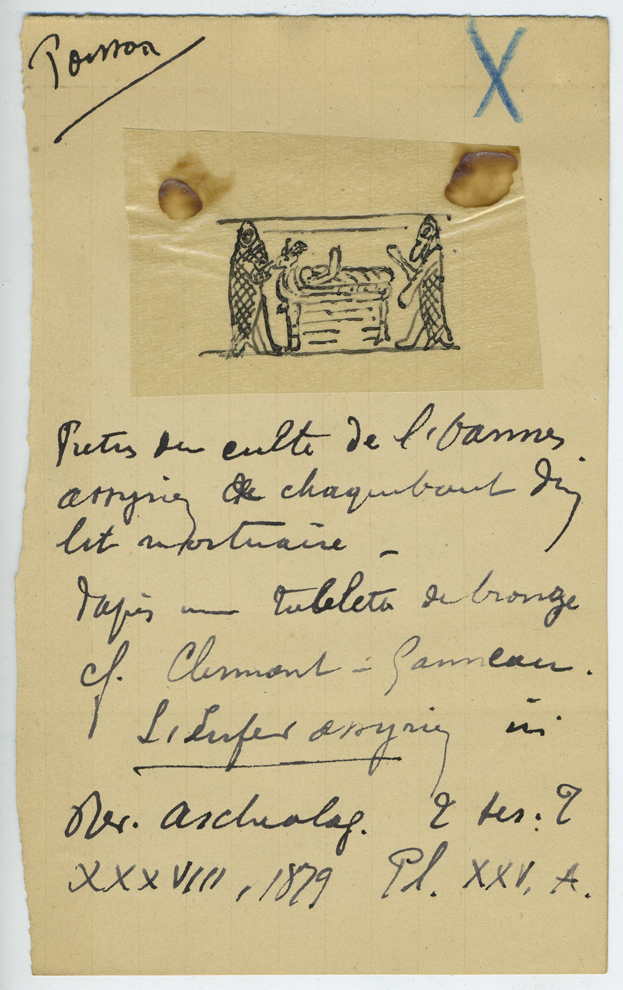 Poisson
X
Pretres du culte de l'Oannes
assyrien de chaque bout d'un
lit mortuaire _
d'après une tablette de bronze
cf. Clermont-Ganneau.
L'Enfer assyrien in
Rev. Archeolog. 2 ser. T
XXXVIII, 1879 Pl. XXV, A.